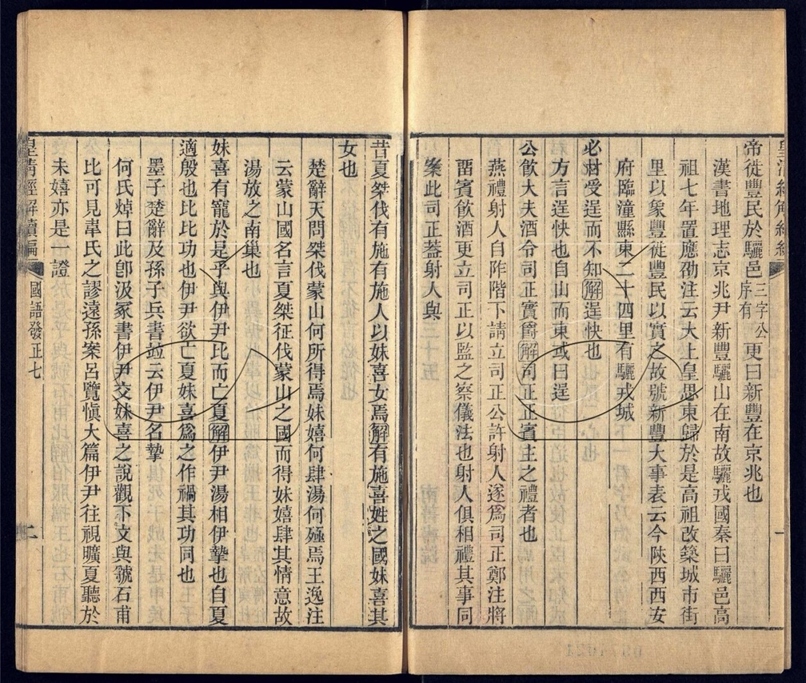 帝徙豐民於驪邑三字公序有更曰新豐在京兆也
漢書地理志京兆尹新豐驪山在南故驪戎國秦曰驪邑高
祖七年置應劭注云大上皇思東歸於是高祖改築城市街
里以象豐徙豐民以實之故號新豐大事表云今陜西西安
府臨潼縣東二十四里有驪戎城
必材受逞而不知解逞快也
方言逞快也自山而東或曰逞
公飮大夫酒令司正實爵解司正正賓主之禮者也
燕禮射人自阼階下請立司正公許射人遂爲司正鄭注將
畱賓飮酒更立司正以監之察儀法也射人俱相禮其事同
案此司正葢射人與
昔夏桀伐有施有施人以妹喜女焉解有施喜姓之國妹喜其
女也
楚辭天問桀伐蒙山何所得焉妹嬉何肆湯何殛焉王逸注
云蒙山國名言夏桀征伐蒙山之國而得妹嬉肆其情意故
湯放之南巢也
妹喜有寵於是乎與伊尹比而亡夏解伊尹湯相伊摯也自夏
適殷也比比功也伊尹欲亡夏妹喜爲之作禍其功同也
墨子楚辭及孫子兵書竝云伊尹名摯
何氏焯曰此卽汲冢書伊尹交妹喜之說觀下文與虢石甫
比可見韋氏之謬遠孫案呂覽愼大篇伊尹往視曠夏聽於
末嬉亦是一證
皇淸經解續編
國語發正七